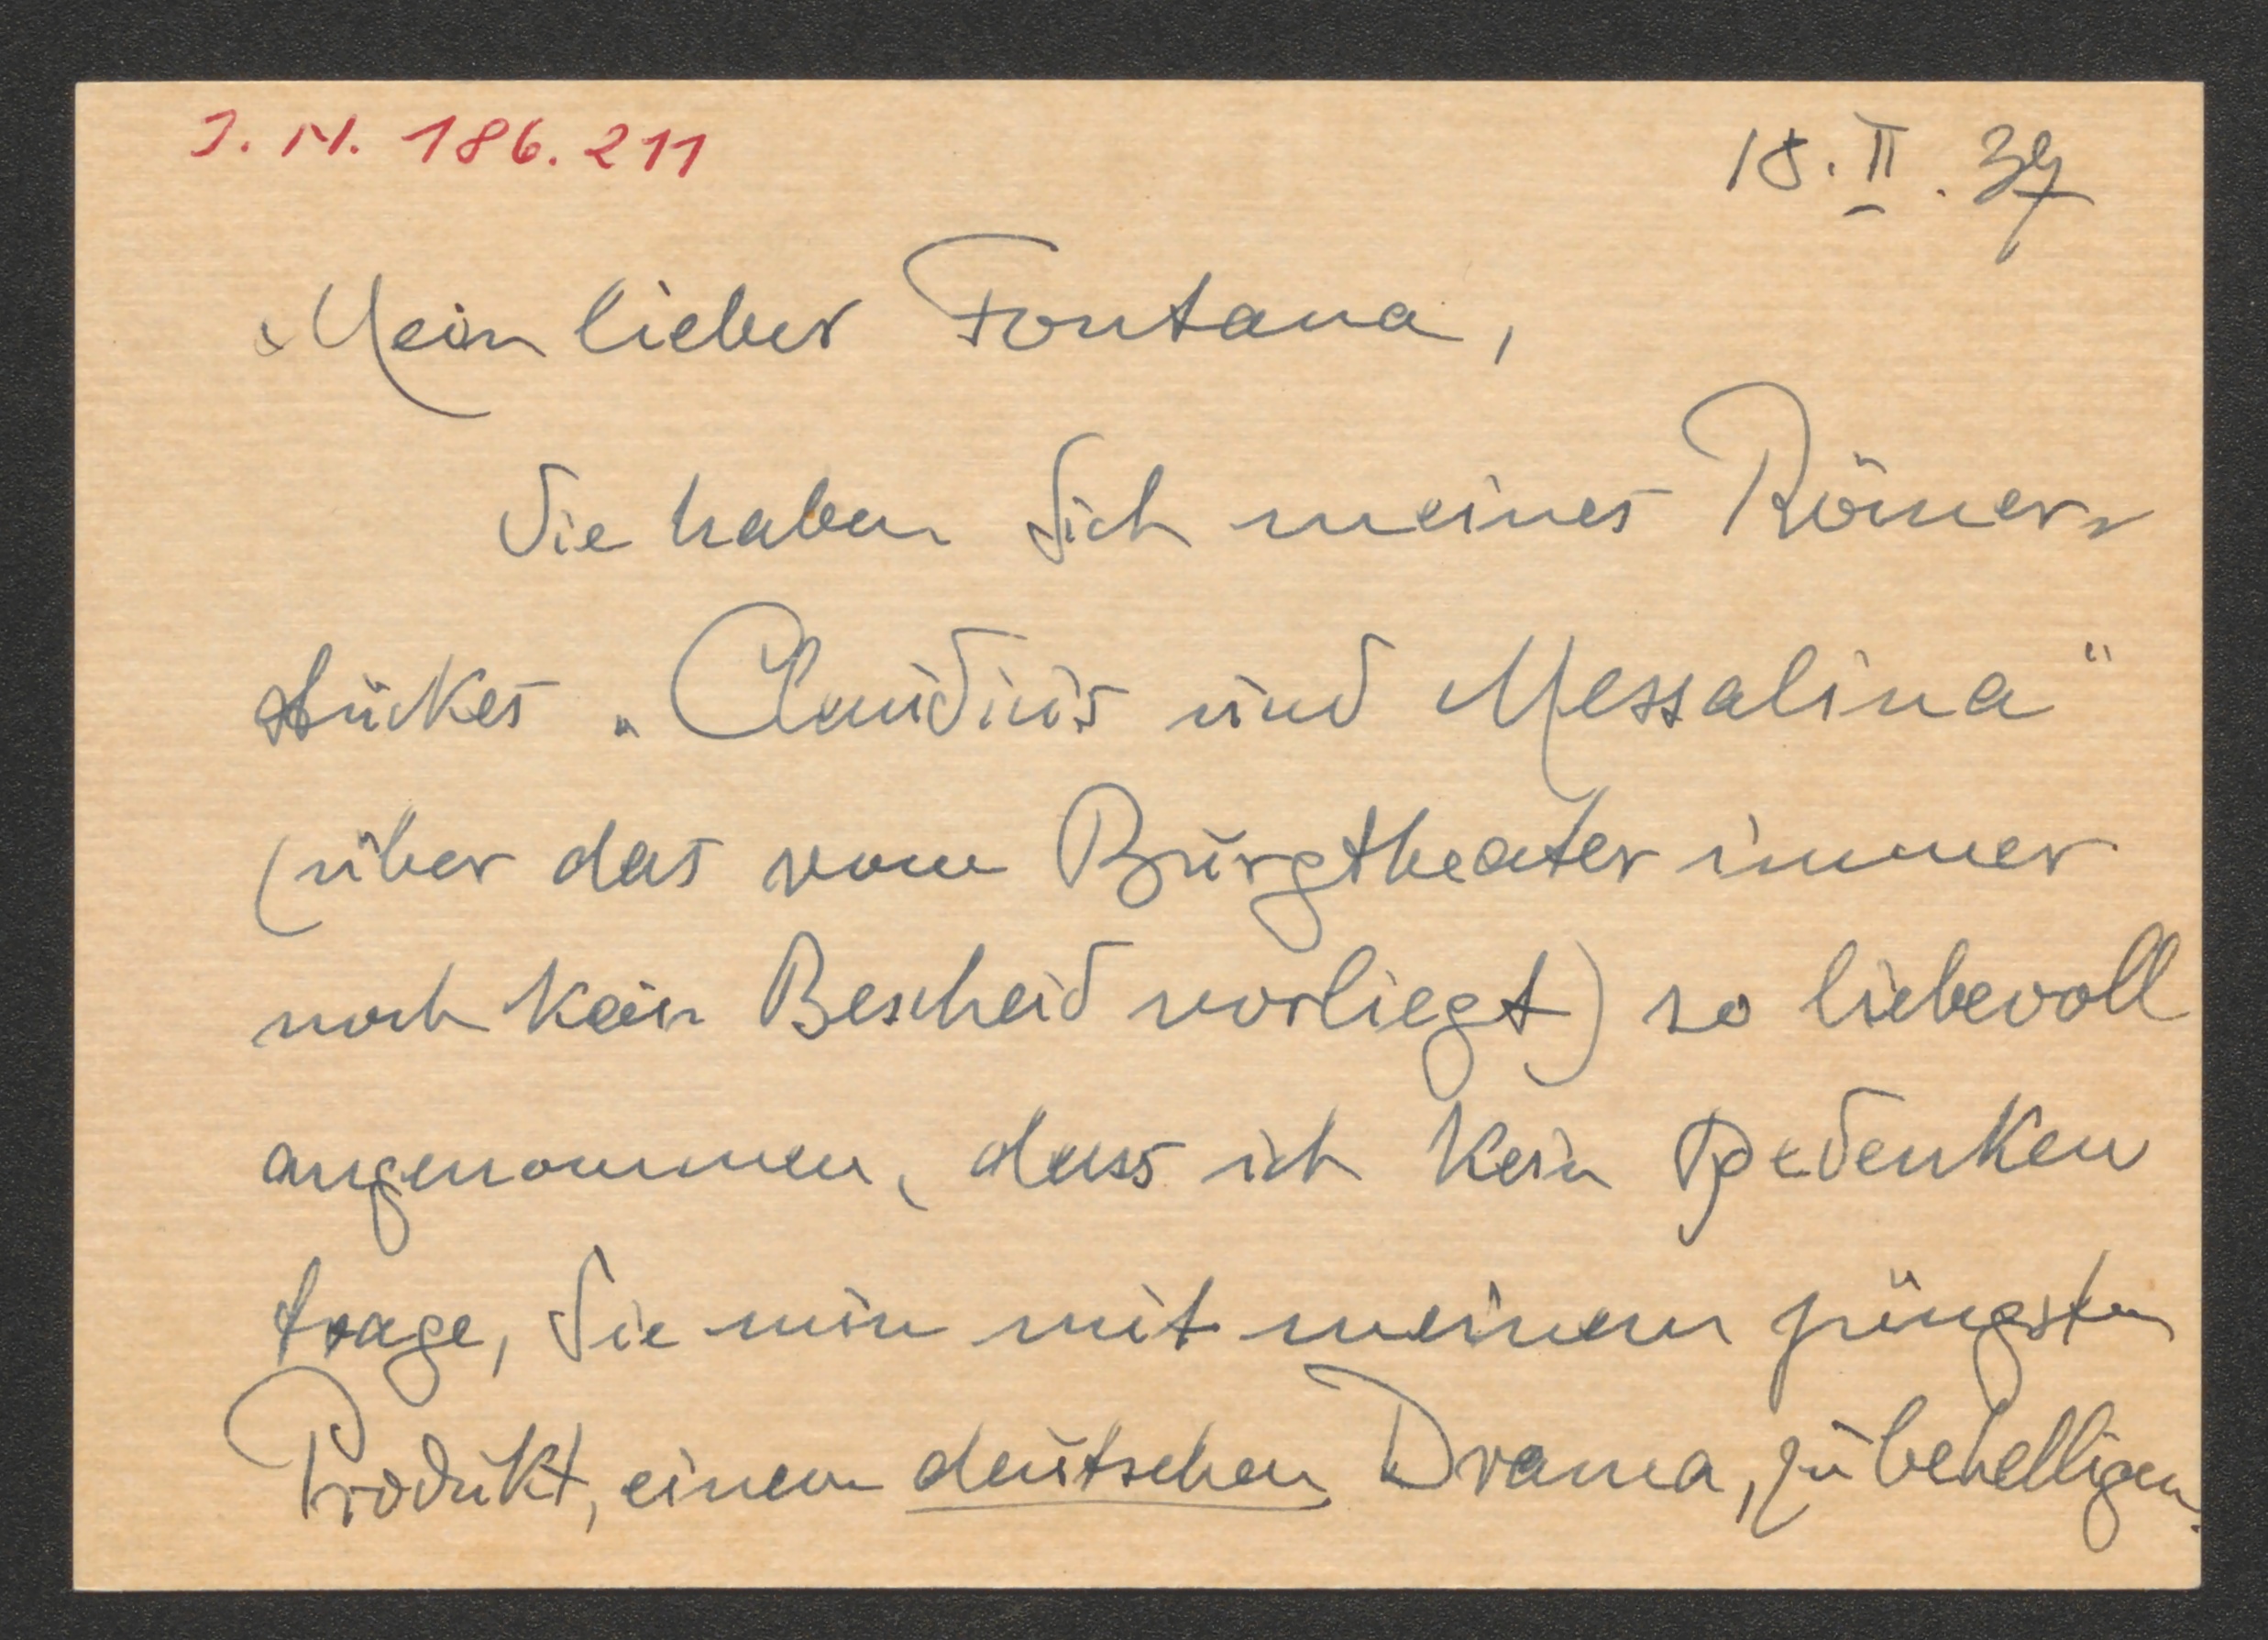 J. N. 186.211
18. II. 37
Mein lieber Fontana,
Sie haben Sich meines Römer-
stückes „Claudius und Messalina"
(über das vom Burgtheater immer
noch kein Bescheid vorliegt) so liebevoll
angenommen, dass ich kein Bedenken
trage, Sie nun mit meinem jüngsten
Produkt, einem deutschen Drama, zu behelligen.